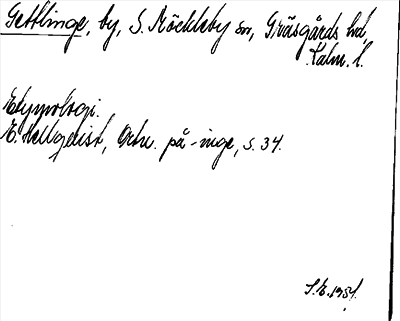 Gettlinge, by, S. Möckleby sn, Gräsgårds hd,
Kalm. l.
Etymologi.
E. Hellquist, Ortn. på -inge, s. 34.